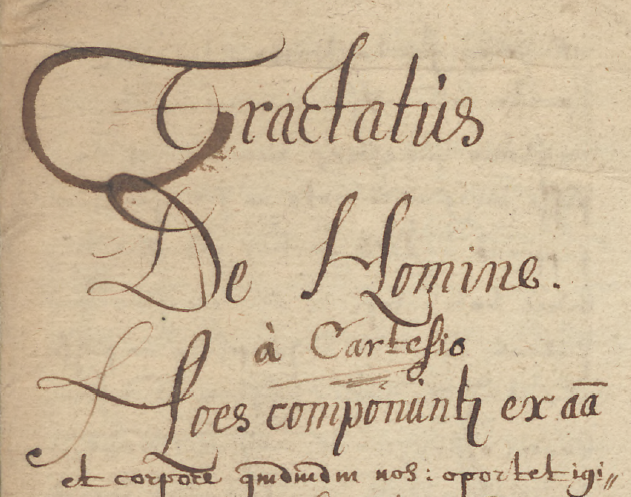 Tractatus
De Homine.
à Cartesio
Hoes componunt~ ex aā
et corpore quēadmodum nos: oportet igi⸗